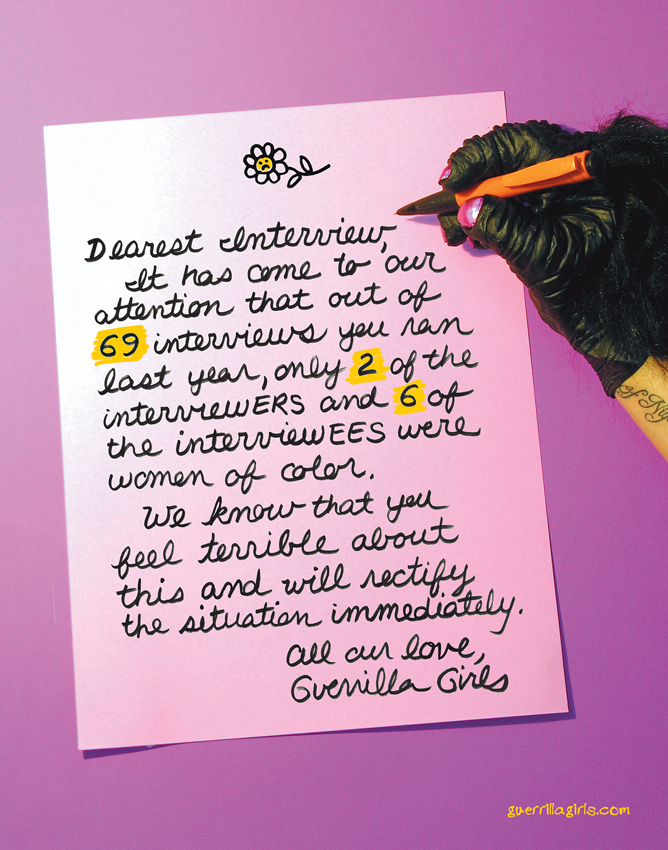 Dearest Interview,
It has come to our
attention that out of
69 interviews you ran
last year, only 2 of the
interviewERS and 6 of
the interviewEES were
women of color.
We know that you
feel terrible about
this and will rectify
the situation immediately.
All our love,
Guerrilla Girls
of Ny
guerrillagirls.com